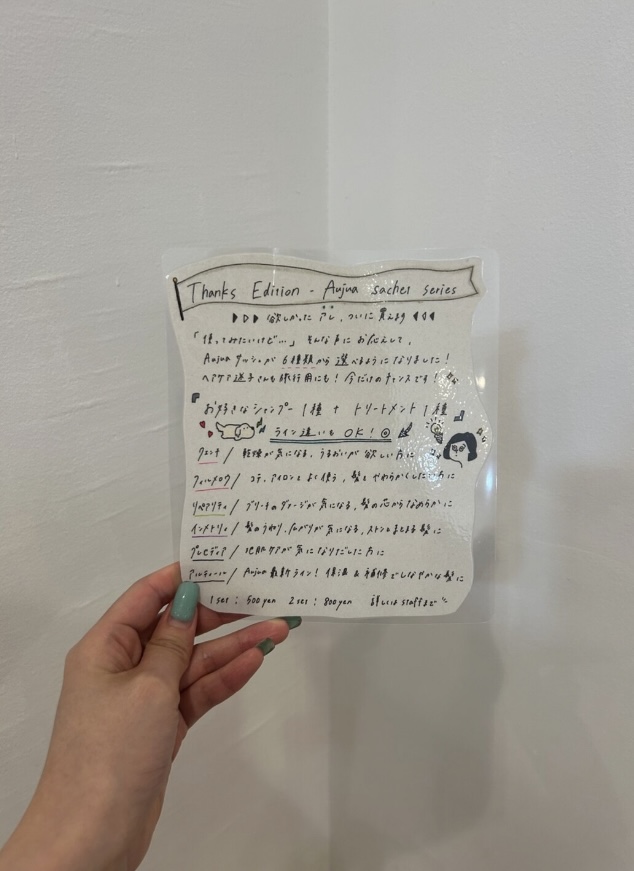 Thanks Edition - Aujua sachet series
▷▷▷ 欲しかった アレ、ついに 買えます ◁◁◁
「使ってみたいけど…」 そんな声に お応えして、
Aujua サシェが 6種類から 選べるようになりました！
ヘアケア迷子さんも 旅行用にも！ 今だけのチャンスです！
『お好きなシャンプー 1種 + トリートメント 1種』
ライン違いも OK！◎
クエンチ / 乾燥が気になる、うるおいが 欲しい方に
フィルメロウ / コテ、アイロンを よく使う、髪を やわらかくしたい方に
リペアリティ / ブリーチのダメージが 気になる、髪の芯からなめらかに
インメトリィ / 髪のうねり、広がりが 気になる、ストンとまとまる 髪に
プレセディア / 地肌ケアが 気になりだした 方に
アルティール / Aujua 最新ライン！ 保湿 & 補修でしなやかな髪に
1set : 500yen 2set : 800yen 詳しくは staffまで